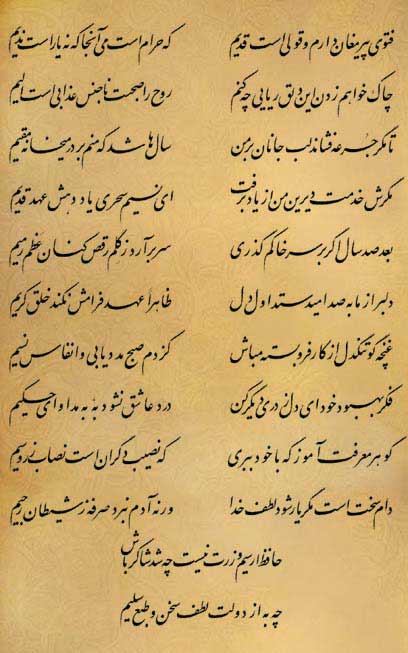 فتوی پیر مغان دارم و قولی است قدیم که حرام است می آنجا که نه یار است ندیم
چاک خواهم زدن این دلق ریایی چه کنم روح را صحبت ناجنس عذابی است الیم
تا مگر جرعه فشاند لب جانان بر من سال‌ها شد که منم بر در میخانه مقیم
مگرش خدمت دیرین من از یاد برفت ای نسیم سحری یاد دهش عهد قدیم
بعد صد سال اگر بر سر خاکم گذری سر برآرد ز گلم رقص کنان عظم رمیم
دلبر از ما به صد امید ستد اول دل ظاهرا عهد فرامش نکند خلق کریم
غنچه گو تنگدل از کار فروبسته مباش کز دم صبح مدد یابی و انفاس نسیم
فکر بهبود خود ای دل ز دری دیگر کن درد عاشق نشود به به مداوای حکیم
گوهر معرفت آموز که با خود ببری که نصیب دگران است نصاب زر و سیم
دام سخت است مگر یار شود لطف خدا ور نه آدم نبرد صرفه ز شیطان رجیم
حافظ ار سیم و زرت نیست چه شد شاکر باش
چه به از دولت لطف سخن و طبع سلیم